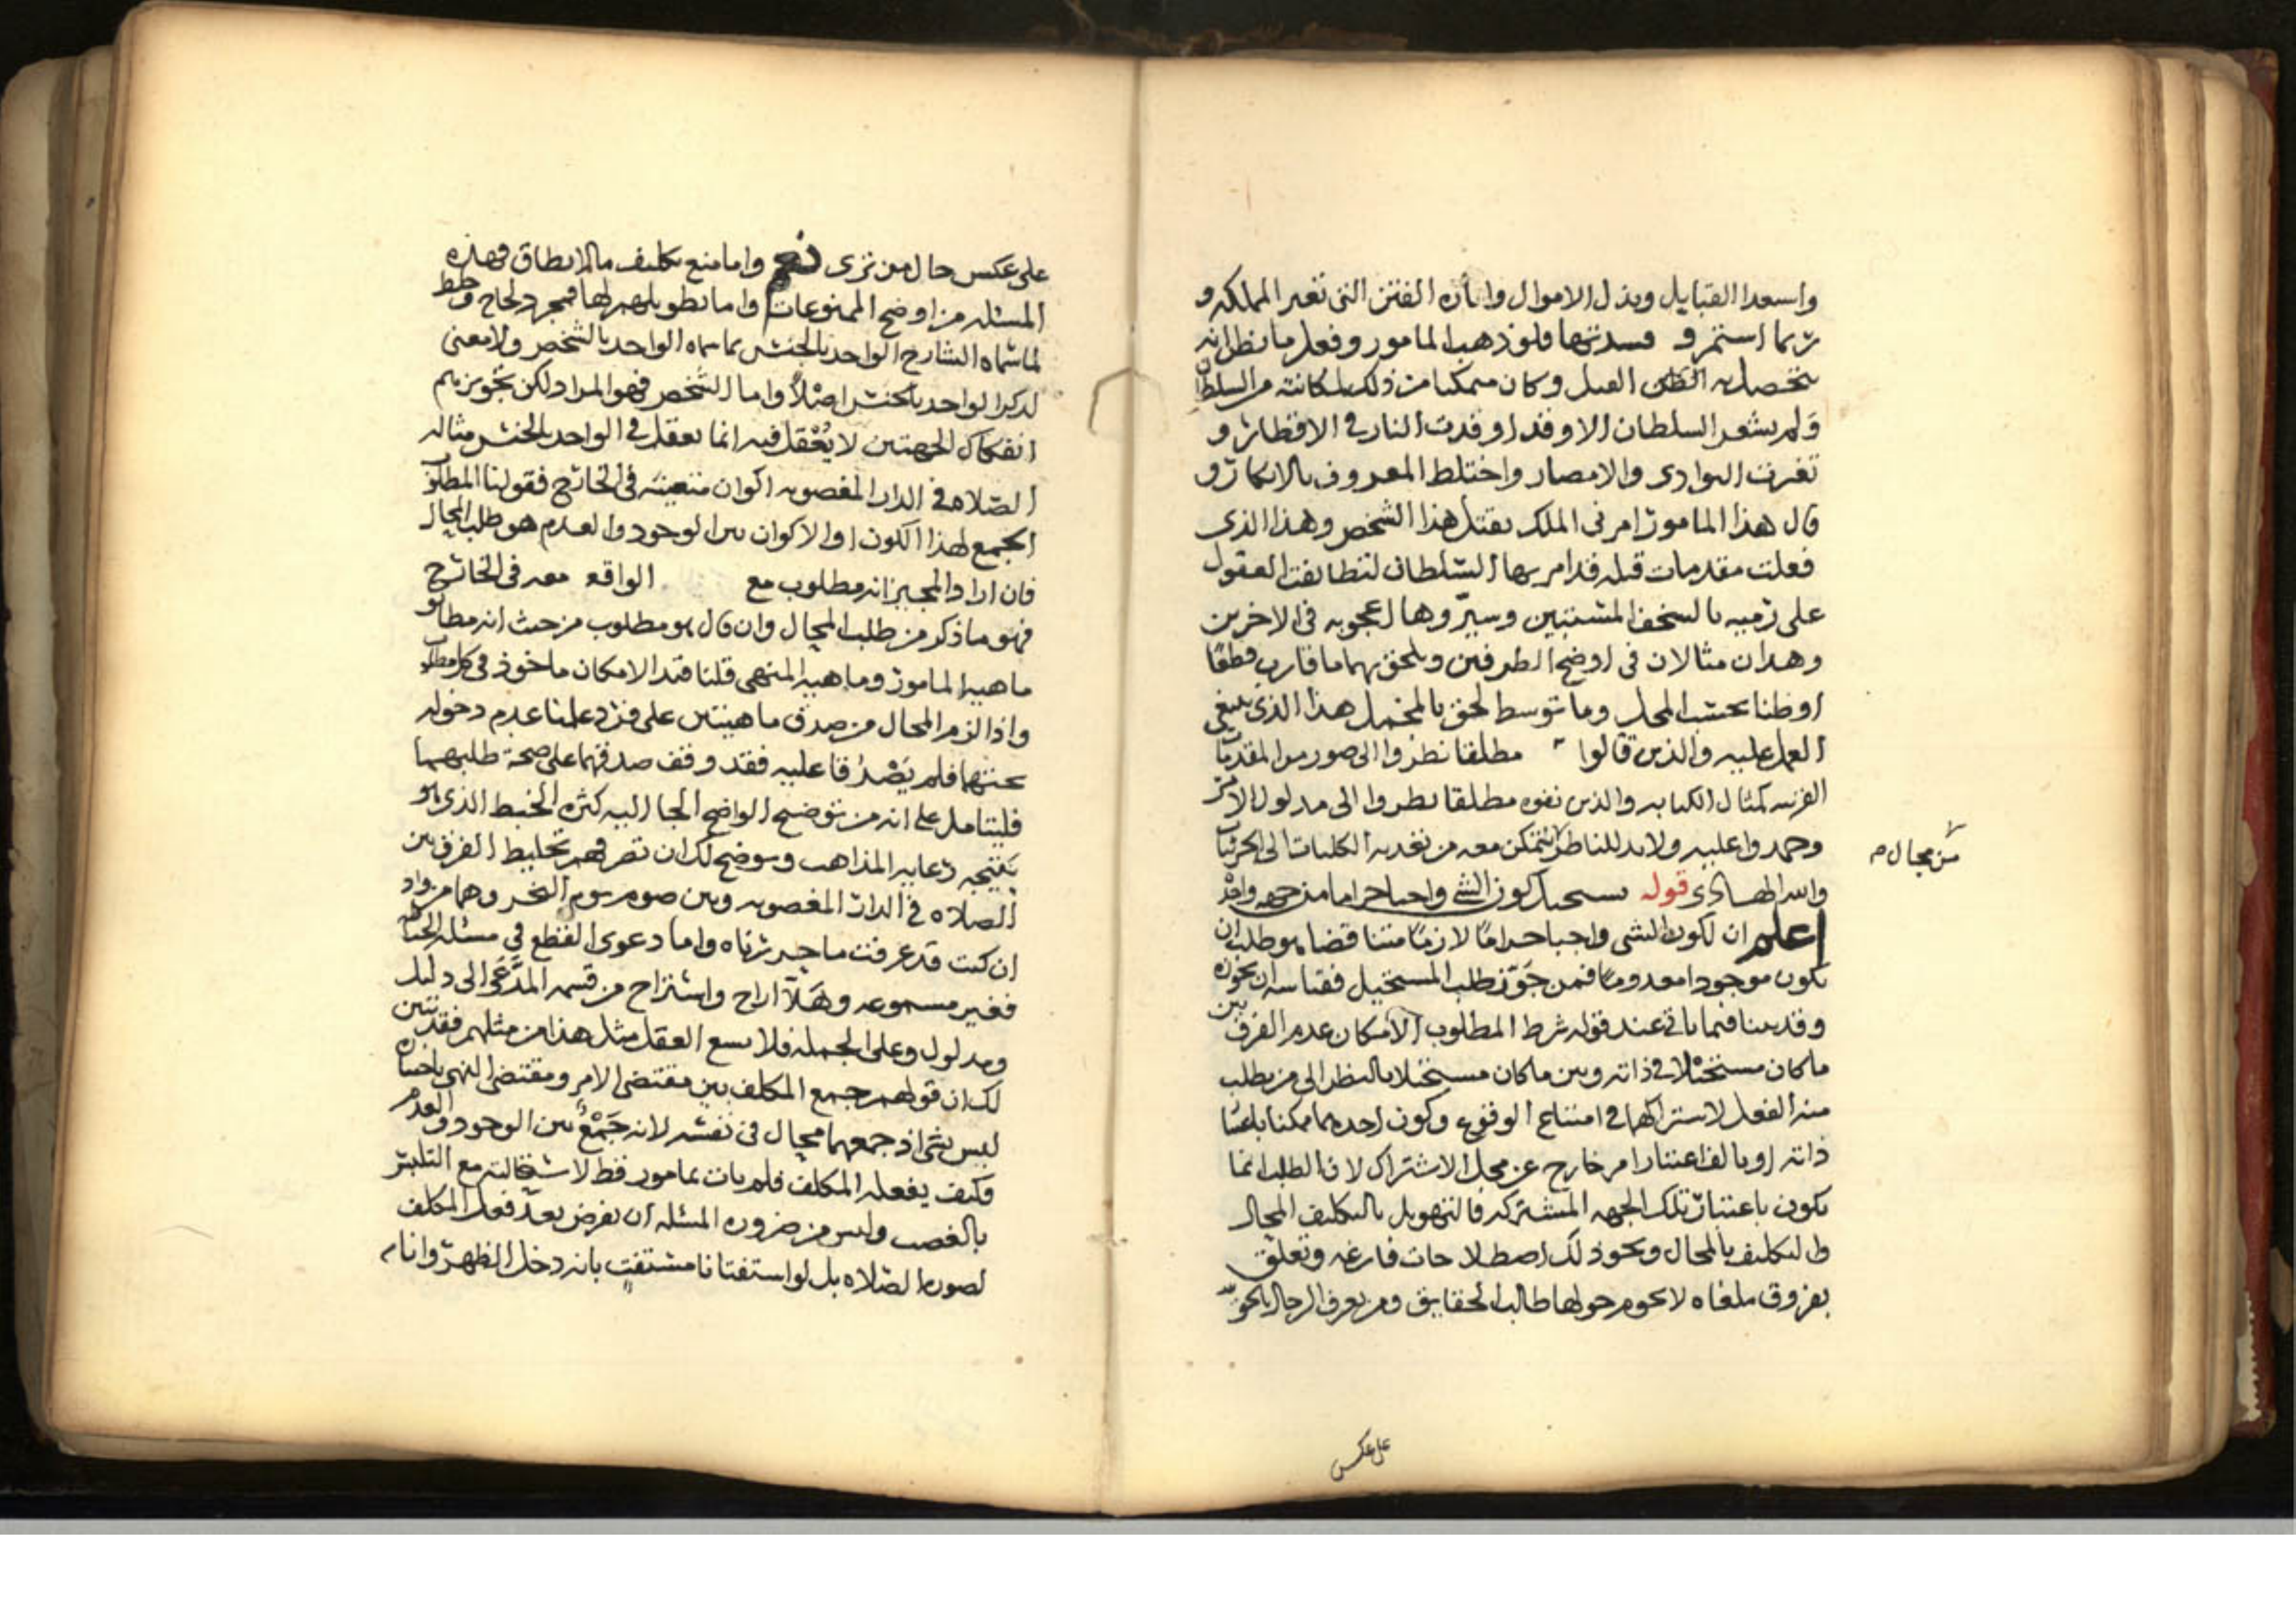 واسعد القبايل وبذل الاموال واثاره الفتن التي تغير المملكه و
ربما استمر و فسدتها فلو ذهب المامور وفعل ما يظن انه
يتحصل به القتل وكان متمكنا من ذلك لمكانته من السلطان
ولم يشعر السلطان الا وقد اوقدت النار في الاقطار و
تغيرت البوادي والامصار واختلط المعروف بالانكار و
قال هذا المامور امرني الملك بقتل هذا الشخص وهذا الذي
فعلت مقدمات قتله قد امر بها السلطان لتطابقت العقول
على رميه بالسخف المستبين وسيروها اعجوبه في الاخرين
وهذان مثالان في اوضح الطرفين ويلحق بهما ما قارب قطعا
او ظنا بحسب المحل وما توسط لحق بالمحتمل هذا الذي ينبغي
العمل عليه والذين قالوا مطلقا نظروا الى صور من المقدمات
القريبه كمثال الكتابه والذين نفوه مطلقا نظروا الى مدلول الامر
وجمدوا عليه ولا بد للناظر يتمكن معه من تعديه الكليات الى الجزئيات
من مجال م
والله الهادي قوله يستحيل كون الشي واجبا حراما من جهه واحده
اعلم ان لكون الشي واجبا حراما لازما متناقضا هو طلب ان
يكون موجودا معدوما فمن جوز طلب المستحيل فقياسه ان يجوزه
وقد بينا فيما ياتي عند قوله شرط المطلوب الامكان عدم الفرق بين
ما كان مستحيلا في ذاته وبين ما كان مستحيلا بالنظر الى من يطلب
منه الفعل لاشتراكهما في امتناع الوقوع وكون احدهما ممكنا باعتبار
ذاته او بالف اعتبار امر خارج عن محل الاشتراك لان الطلب انما
يكون باعتبار تلك الجهه المشتركه فالتهويل بالتكليف المحال
والتكليف بالمحال ونحو ذلك اصطلاحات فارغه وتعلق
بفروق ملغاه لا يحوم حولها طالب الحقايق ومن يعرف الرجال بالحق
على عكس
على عكس حال من ترى نعم واما منع تكليف ما لا يطاق فهذه
المسئله من اوضح الممنوعات واما تطويلهم لها فمجرد لجاج وخلط
لما سماه الشارح الواحد بالجنس بما سماه الواحد بالشخص ولا معنى
لذكر الواحد بالجنس اصلا واما الشخص فهو المراد لكن تجويزهم
انفكاك الجهتين لا يعقل فيه انما يعقل في الواحد بالجنس مثاله
الصلاه في الدار المغصوبه اكوان متعينه في الخارج فقولنا المطلوب
الجمع لهذا الكون او الاكوان بين الوجود والعدم هو طلب المحال
فان اراد المجيز انه مطلوب مع الواقع معه في الخارج
فهو ما ذكر من طلب المحال وان قال هو مطلوب من حيث انه مطابق
ماهيه المامور وماهيه المنهي قلنا قيد الامكان ماخوذ في كل مطلوب
واذا لزم المحال من صدق ماهيتين على فرد علمنا عدم دخوله
تحتهما فلم يصدقا عليه فقد وقف صدقهما على صحة طلبهما
فليتامل على انه من توضيح الواضح الجا اليه كثره الخبط الذي هو
نتيجه رعايه المذاهب ويوضح لك ان تعرفهم تخليط الفرق بين
الصلاه في الدار المغصوبه وبين صوم يوم النحر وهما من واد
ان كنت قد عرفت ما حررناه واما دعوى القطع في مسئله الخياطه
فغير مسموعه وهلا اراح واستراح من قسمه المدعى الى دليل
ومدلول وعلى الجمله فلا يسع العقل مثل هذا من مثلهم فقد تبين
لك ان قولهم جمع المكلف بين مقتضى الامر ومقتضى النهي باختياره
ليس بشي اذ جمعهما محال في نفسه لانه جمع بين الوجود والعدم
فكيف يفعله المكلف فلم يات بمامور قط لاستحالته مع التلبس
بالغصب وليس من ضروره المسئله ان نفرض بعد فعل المكلف
لصوره الصلاه بل لو استفتانا مستفت بانه دخل الظهر وانا م